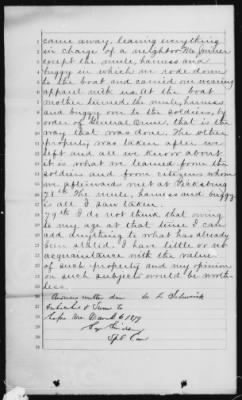 came away leaving everything
in charge of a neighbor Mr
except the mule, harness and
buggy in which we rode down
to the boat and carried our wearing
apparel with us. At the boat
mother turned the mule, harness
and buggy over to the soldiers, by
order of General that is the
way that was done. The other
property was taken after we
left and all we know about
it is what we learned from the
soldiers and from citizens whom
we afterwards met at Vicksburg
78th The mule, harness and buggy
is all I saw taken.
79th I do not think that owing
to my age at that time I can
add anything to what has already
been stated. I have little or no
acquaintance with the value
of such property and my opinion
on such subjects would be worth-
less.
Answers written down
Subscribed & Sworn to
before me March 6 1879
Spl Com